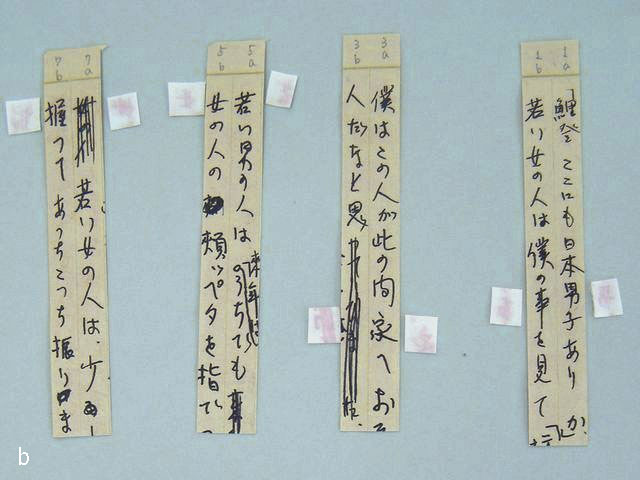 1a
1b
鯉登 ここにも日本男子あり
か、
若い女の人は僕の事を見て
3a
3b
僕はこの人が此の間家へお
人だなと思
た。
5a
5b
若い男の人は のうちでも
女の人の 頬ッペタを指で
7a
7b
若い女の人は、少
握って あっちこっち振り ま
b